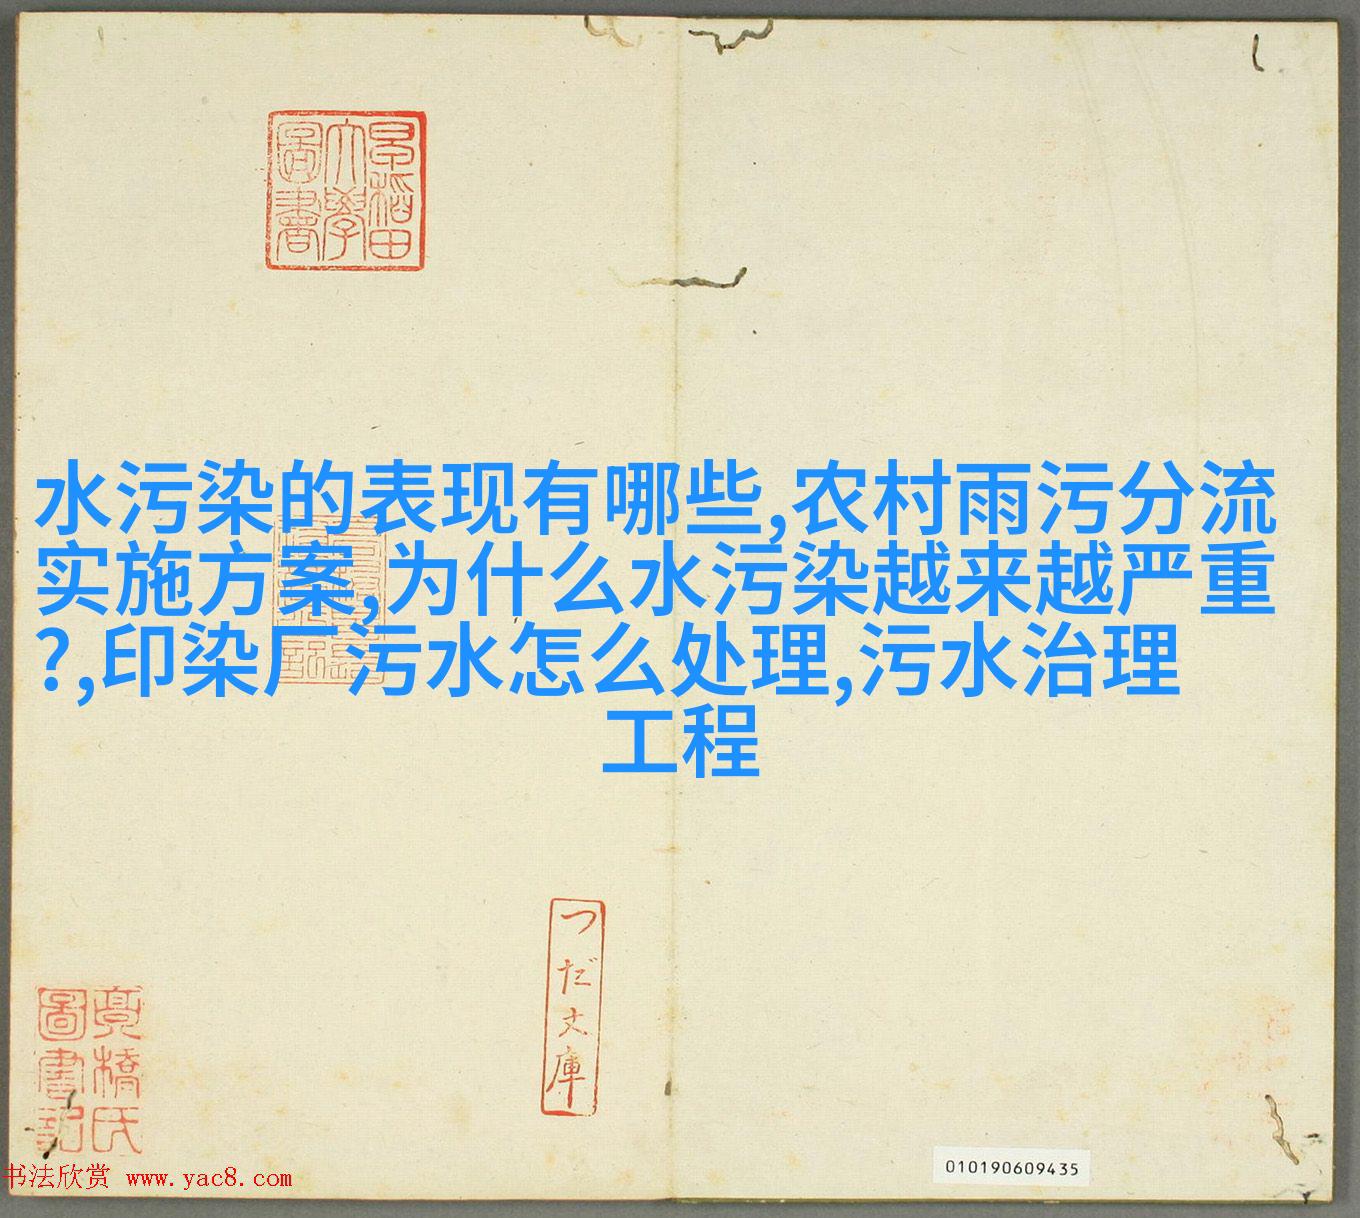 早稲田
大學
圖書
水污染的表现有哪些,农村雨污分流
实施方案,为什么水污染越来越严重
?,印染厂污水怎么处理,污水治理
工程
つだ文庫
橋氏
圖書記
010190609435
书法欣赏 www.yac8.com